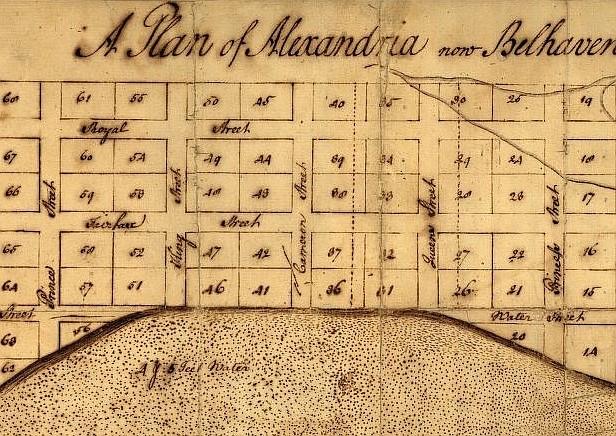 A Plan of Alexandria now Belhaven
60 61 55 50 45 40 35 30 25 19
Royal Street
67 60 54 49 44 39 34 29 24 18
66 59 53 48 43 38 33 28 23 17
Prince Street
King Street
Cameron Street
Queens Street
Princess Street
Fairfax Street
65 58 52 47 42 37 32 27 22 16
64 57 51 46 41 36 31 26 21 15
Street
Water Street
63 56 20 14
62
4 Or 5 feet Water